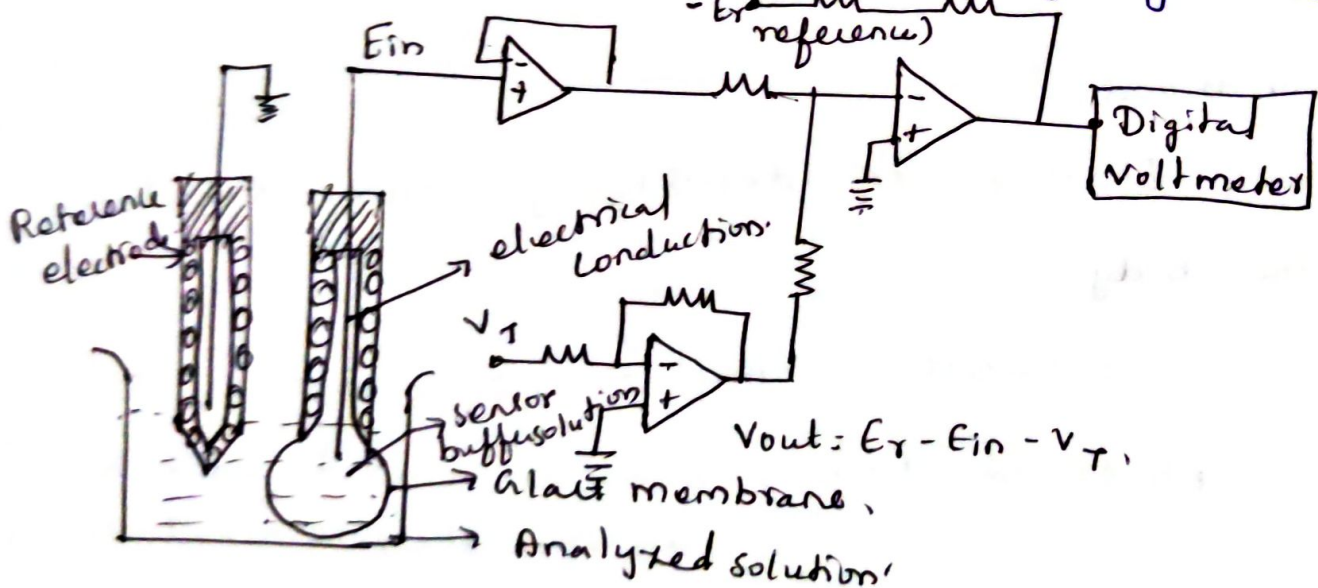 - Er
reference)
Ein
-
+
-
+
Digital
Voltmeter
Reference
electrode
electrical
conduction.
VT
-
+
sensor
buffersolution
Vout = Er - Ein - VT.
Glass membrane.
Analyzed solution.